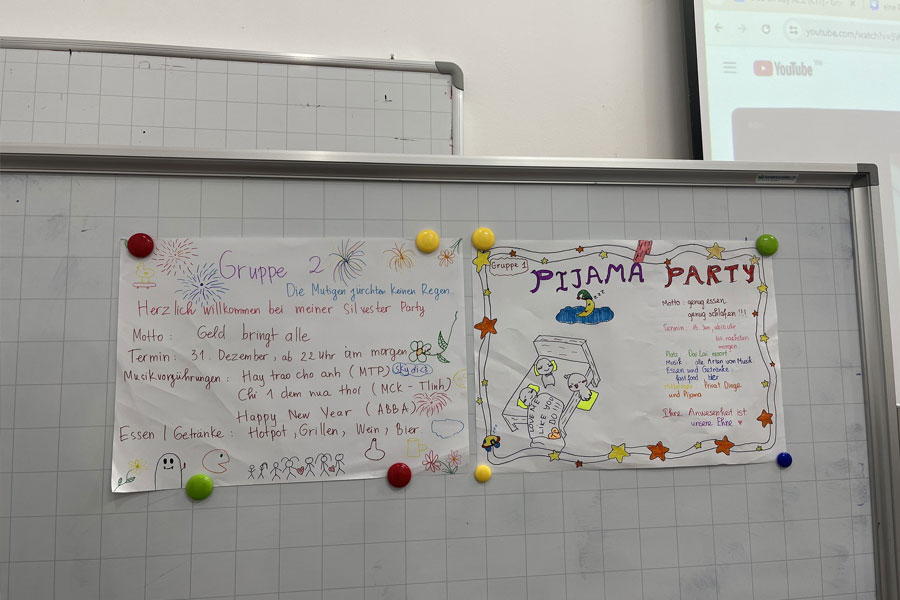 YouTube
Gruppe 2
Die Mutigen fürchten keinen Regen
Herzlich willkommen bei meiner Silvester Party
Motto: Geld bringt alle
Termin: 31. Dezember, ab 22 Uhr am morgen
Musikvorführungen: Hay trao cho anh (MTP) Skydies
Chi 1 đem nua thoi (MCK - Tlinh)
Happy New Year (ABBA)
Essen / Getränke: Hotpot, Grillen, Wein, Bier
Gruppe 1
PIJAMA PARTY
zzz
LOVE ME
LIKE YOU
DO!!!
Motto: genug essen,
genug schlafen!!!
Termin:
bis nächsten
morgen
Platz: Dai Lai resort
Musik: alle Arten von Musik
Essen und Getränke:
fast food, bier
Mitbringen: Privat Dinge
und Pijama
Ihre Anwesenheit ist
unsere Ehre